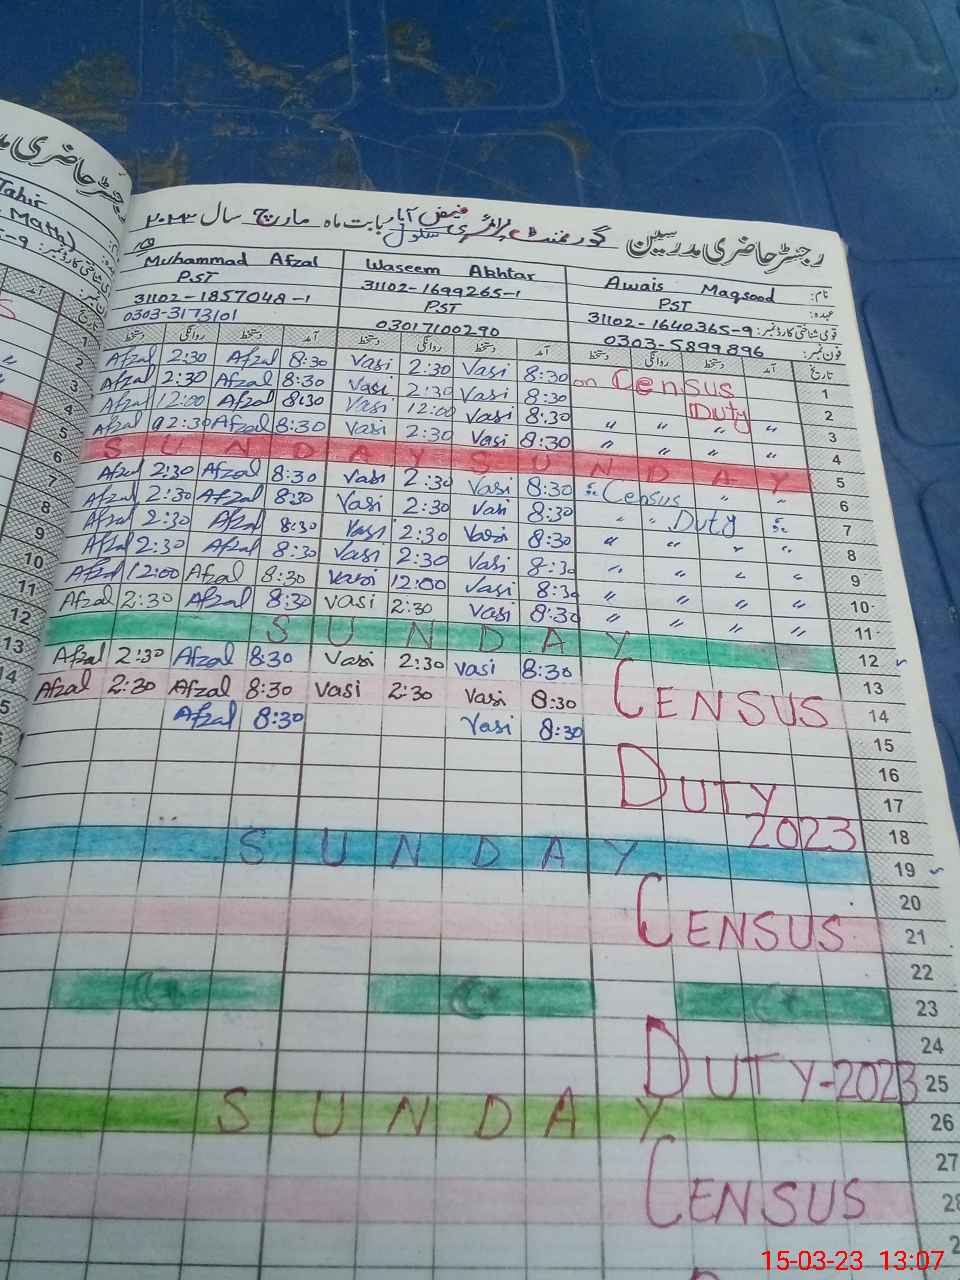 رجسٹر حاضری مدرسین گورنمنٹ پرائمری سکول فیض آباد بابت ماہ مارچ سال ۲۰۲۳
رجسٹر حاضری
Tahir
Math)
Muhammad Afzal Waseem Akhtar Awais Maqsood نام:
PST 31102-1699265-1 PST عہدہ:
31102-1857048-1 PST 31102-1640365-9 قومی شناختی کارڈ نمبر:
0303-3173101 03017100290 0303-5899896 فون نمبر:
دستخط روانگی دستخط آمد دستخط روانگی دستخط آمد دستخط روانگی دستخط آمد تاریخ
Afzal 2:30 Afzal 8:30 Vasi 2:30 Vasi 8:30 on Census 1
Afzal 2:30 Afzal 8:30 Vasi 2:30 Vasi 8:30 Duty 2
Afzal 12:00 Afzal 8:30 Vasi 12:00 Vasi 8:30 " " " " 3
Afzal 02:30 Afzal 8:30 Vasi 2:30 Vasi 8:30 " " " " 4
S U N D A Y S U N D A Y 5
Afzal 2:30 Afzal 8:30 Vasi 2:30 Vasi 8:30 Census " " 6
Afzal 2:30 Afzal 8:30 Vasi 2:30 Vasi 8:30 " " Duty 7
Afzal 2:30 Afzal 8:30 Vasi 2:30 Vasi 8:30 " " " " 8
Afzal 2:30 Afzal 8:30 Vasi 2:30 Vasi 8:30 " " " " 9
Afzal 12:00 Afzal 8:30 Vasi 12:00 Vasi 8:30 " " " " 10
Afzal 2:30 Afzal 8:30 Vasi 2:30 Vasi 8:30 " " " " 11
S U N D A Y 12
Afzal 2:30 Afzal 8:30 Vasi 2:30 Vasi 8:30 13
Afzal 2:30 Afzal 8:30 Vasi 2:30 Vasi 8:30 CENSUS 14
Afzal 8:30 Vasi 8:30 15
16
DUTY 17
2023 18
S U N D A Y 19
20
CENSUS 21
22
23
24
DUTY-2023 25
S U N D A Y 26
27
CENSUS 28
15-03-23 13:07